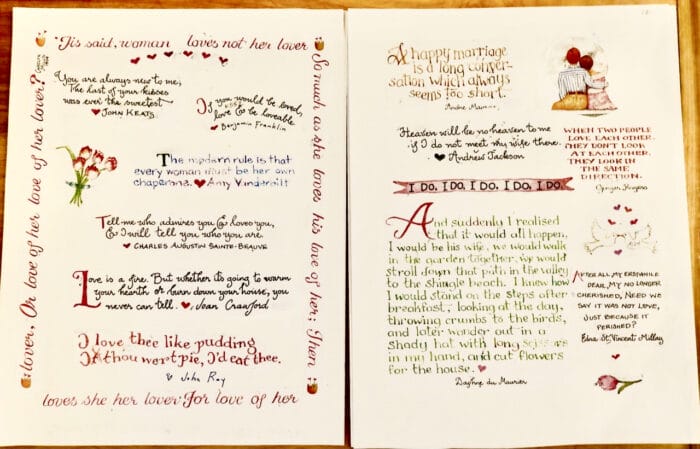 'Tis said, woman loves not her lover
So much as she loves his love of her; Then
loves she her lover For love of her
lover, Or love of her love of her lover?
You are always new to me;
The last of your kisses
was ever the sweetest
JOHN KEATS
If you would be loved,
love & be loveable
Benjamin Franklin
The modern rule is that
every woman must be her own
chaperone. Amy Vanderbilt
Tell me who admires you & loves you,
& I will tell you who you are.
CHARLES AUGUSTIN SAINTE-BEAUVE
Love is a fire. But whether it's going to warm
your hearth or burn down your house, you
never can tell. Joan Crawford
I love thee like pudding
If thou wert pie, I'd eat thee.
John Ray
A happy marriage
is a long conver-
sation which always
seems too short.
Andre Maurois
Heaven will be no heaven to me
if I do not meet my wife there.
Andrew Jackson
WHEN TWO PEOPLE
LOVE EACH OTHER,
THEY DON'T LOOK
AT EACH OTHER,
THEY LOOK IN
THE SAME
DIRECTION.
Ginger Rogers
I DO, I DO, I DO, I DO, I DO
And suddenly I realised
that it would all happen,
I would be his wife, we would walk
in the garden together, we would
stroll down that path in the valley
to the shingle beach. I knew how
I would stand on the steps after
breakfast, looking at the day,
throwing crumbs to the birds,
and later wander out in a
shady hat with long scissors
in my hand, and cut flowers
for the house.
Daphne du Maurier
AFTER ALL, MY ERSTWHILE
DEAR, MY NO LONGER
CHERISHED, NEED WE
SAY IT WAS NOT LOVE,
JUST BECAUSE IT
PERISHED?
Edna St. Vincent Millay